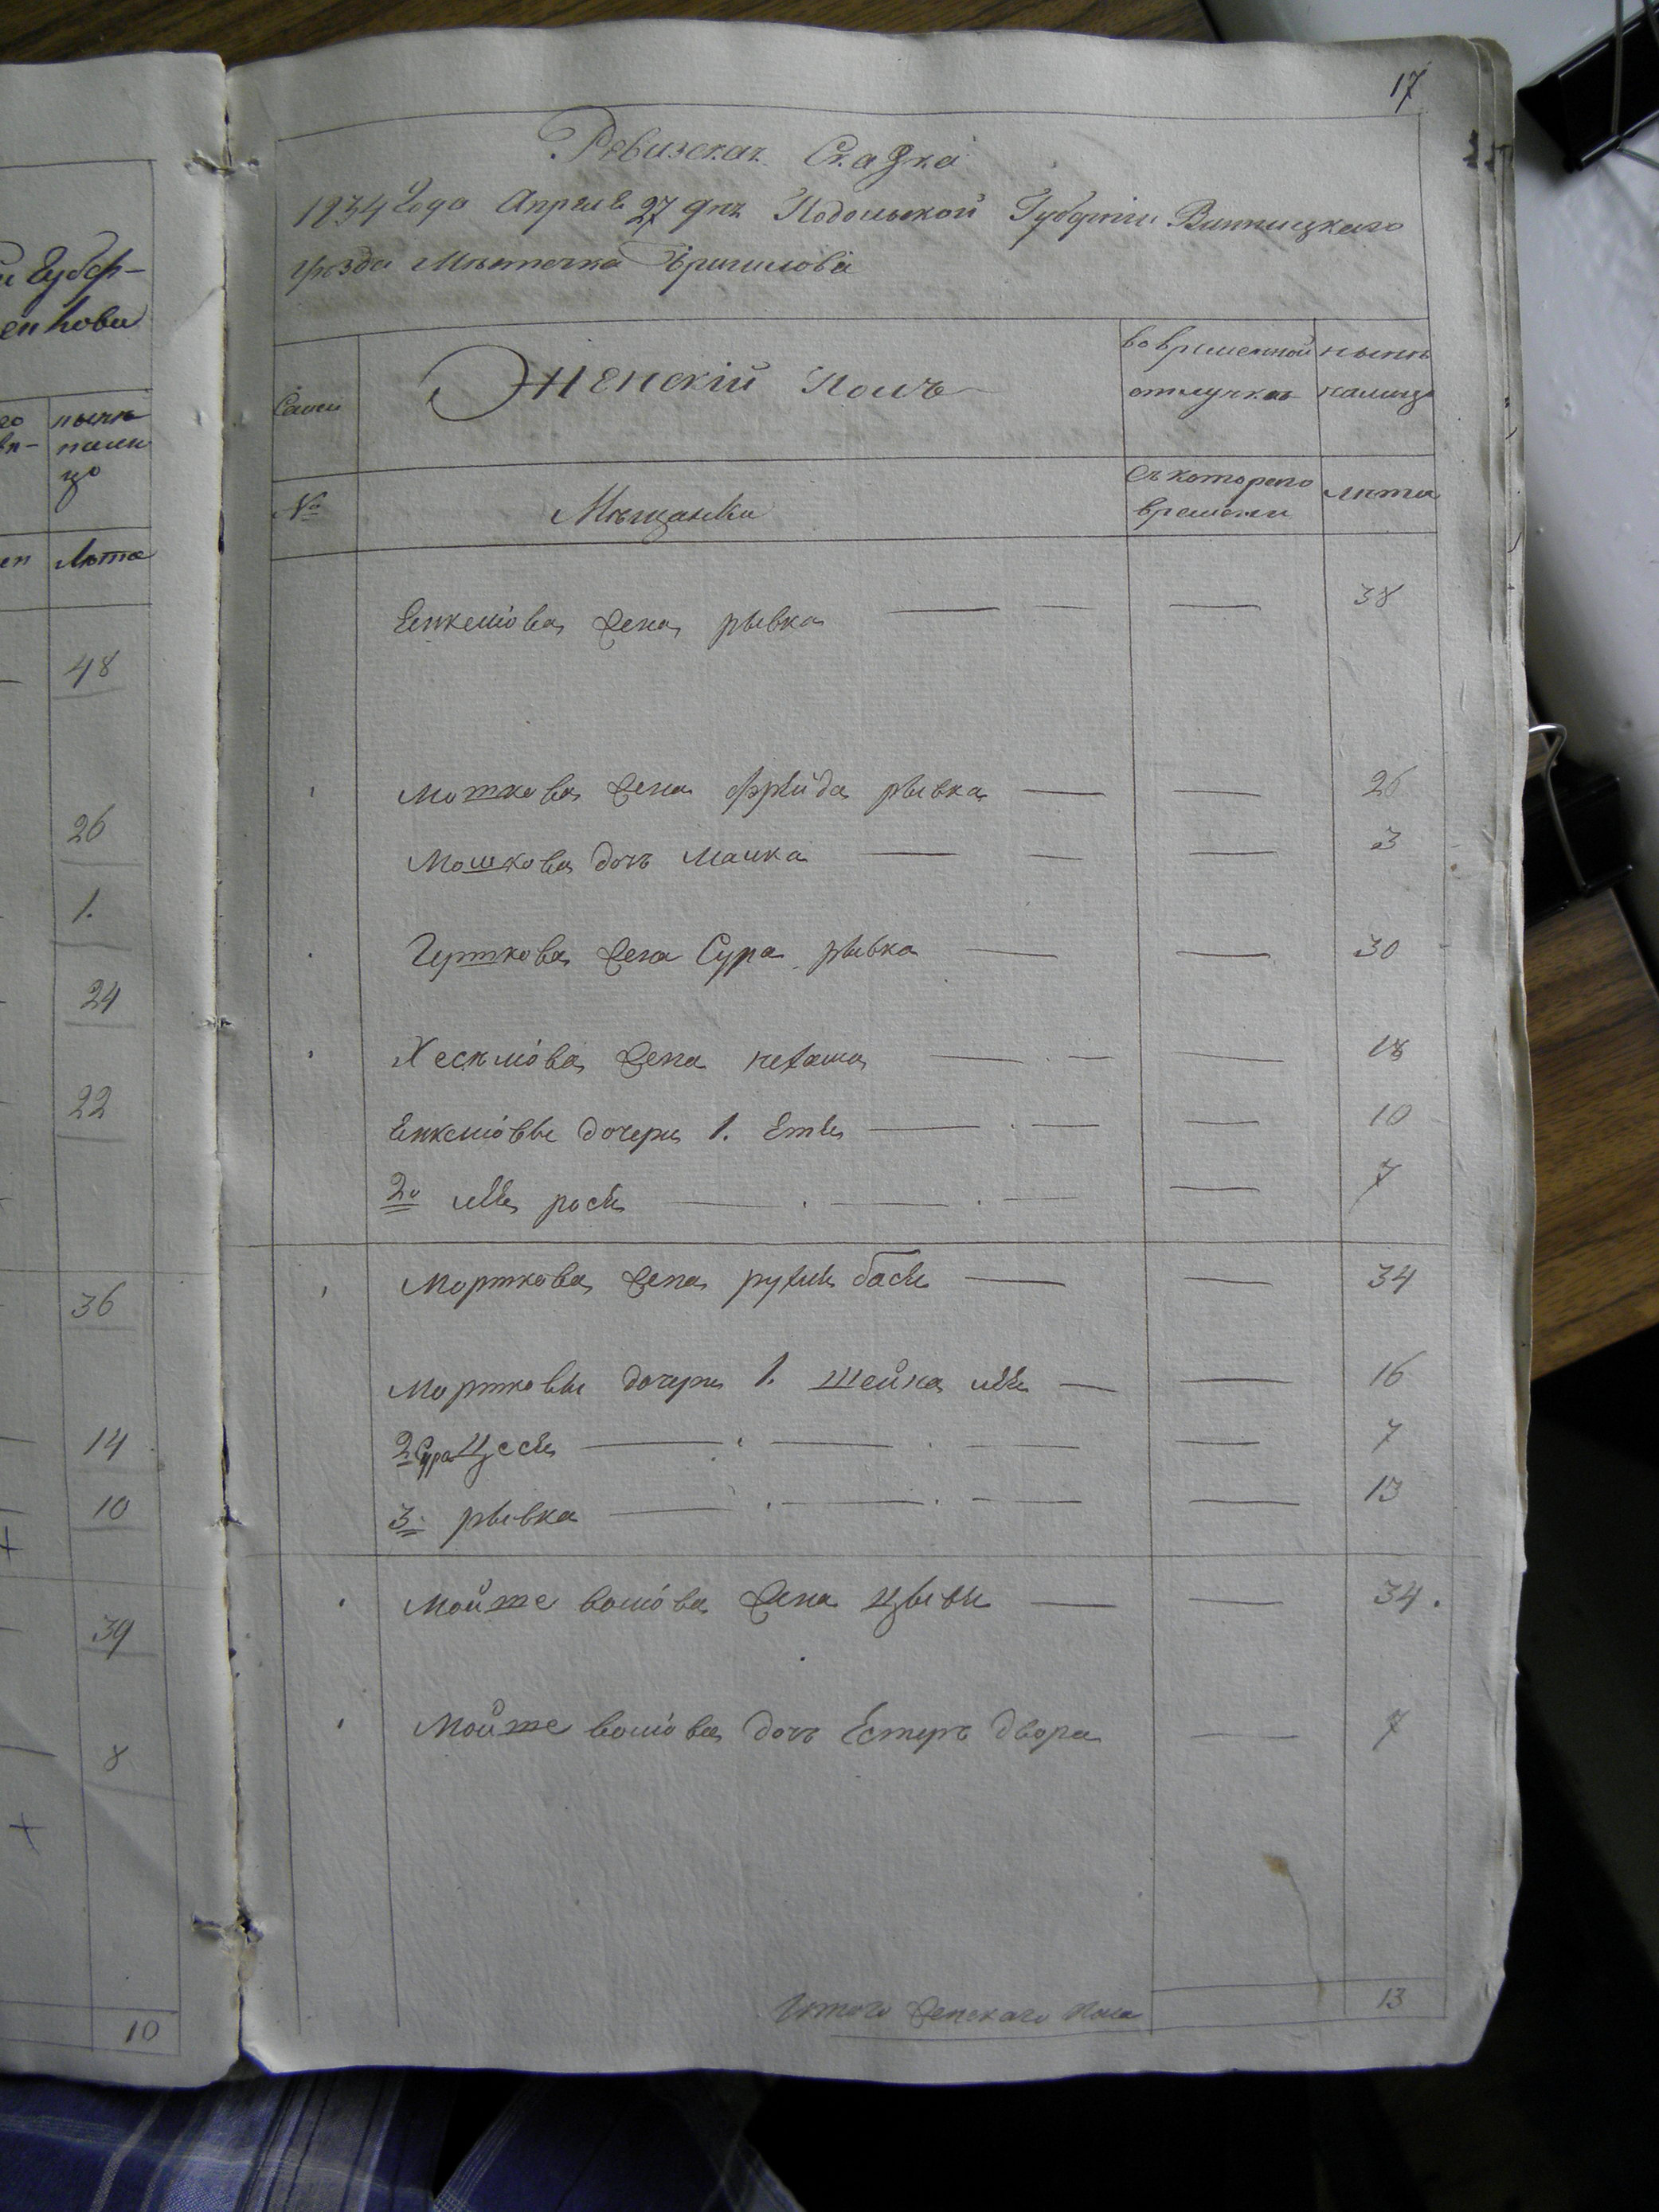 17
Ревизская Сказка
1834 Года Апреля 27 дня Подольской Губернии Винницкаго
уезда Мѣстечка
Семьи
Женскій Полъ
во временной отлучкѣ
нынѣ налицо
№
Мѣщанки
съ котораго времяни
лѣта
Енкелiова жена рывка 38
Мошкова жена фрейда рывка 26
Мошкова дочь Малка 3
жена Сура рывка 30
жена нехама 18
Енкелiовы дочери 1. Етля 10
2я рося 7
Морткова жена рухля бася 34
Мортковы дочери 1. шейна 16
2 Сура Цеся 7
3. рывка 13
Мойше волiова жена цывя 34.
Мойше волiова дочь Естеръ двора 7
Итого женскаго Пола 13
и Губер-
нынѣ
нали
цо
Лѣта
48
26
1.
24
22
36
14
10
39
8
10